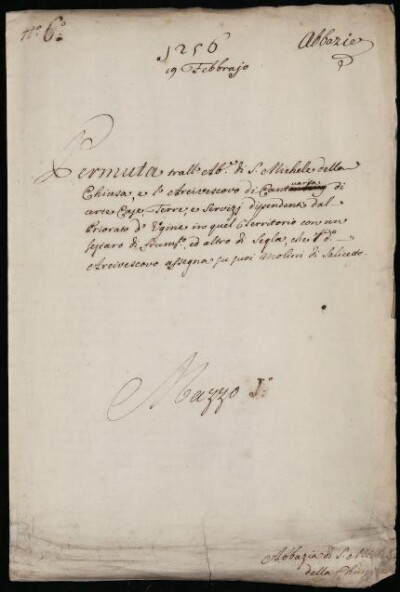 N.º 6.º
Abbazie
1256
19 Febbrajo
Permuta trall' Ab.e di S. Michele della
Chiusa, e l'Arcivescovo di
di
certe Case, Terre, e Servizj dipendenti dal
Priorato d' Ugine in quel Territorio con un
sestaro di frum.º, ed altro di Segla, che d.º
Arcivescovo assegna su suoi molini di Saliceto.
Mazzo 1.º
Abbazia di S. Mich
della Chius